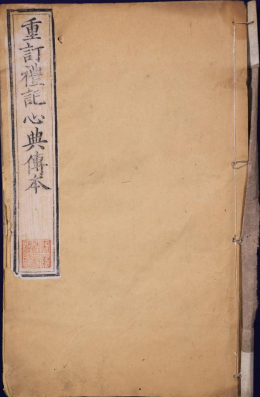 重訂禮記心典傳本